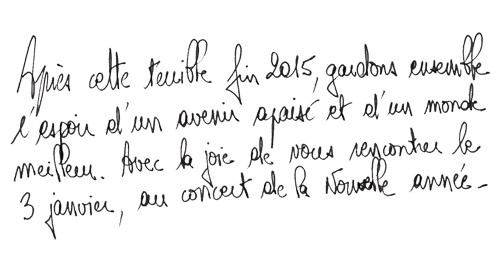 Après cette terrible fin 2015, gardons ensemble
l'espoir d'un avenir apaisé et d'un monde
meilleur. Avec la joie de vous rencontrer le
3 janvier, au concert de la Nouvelle année.